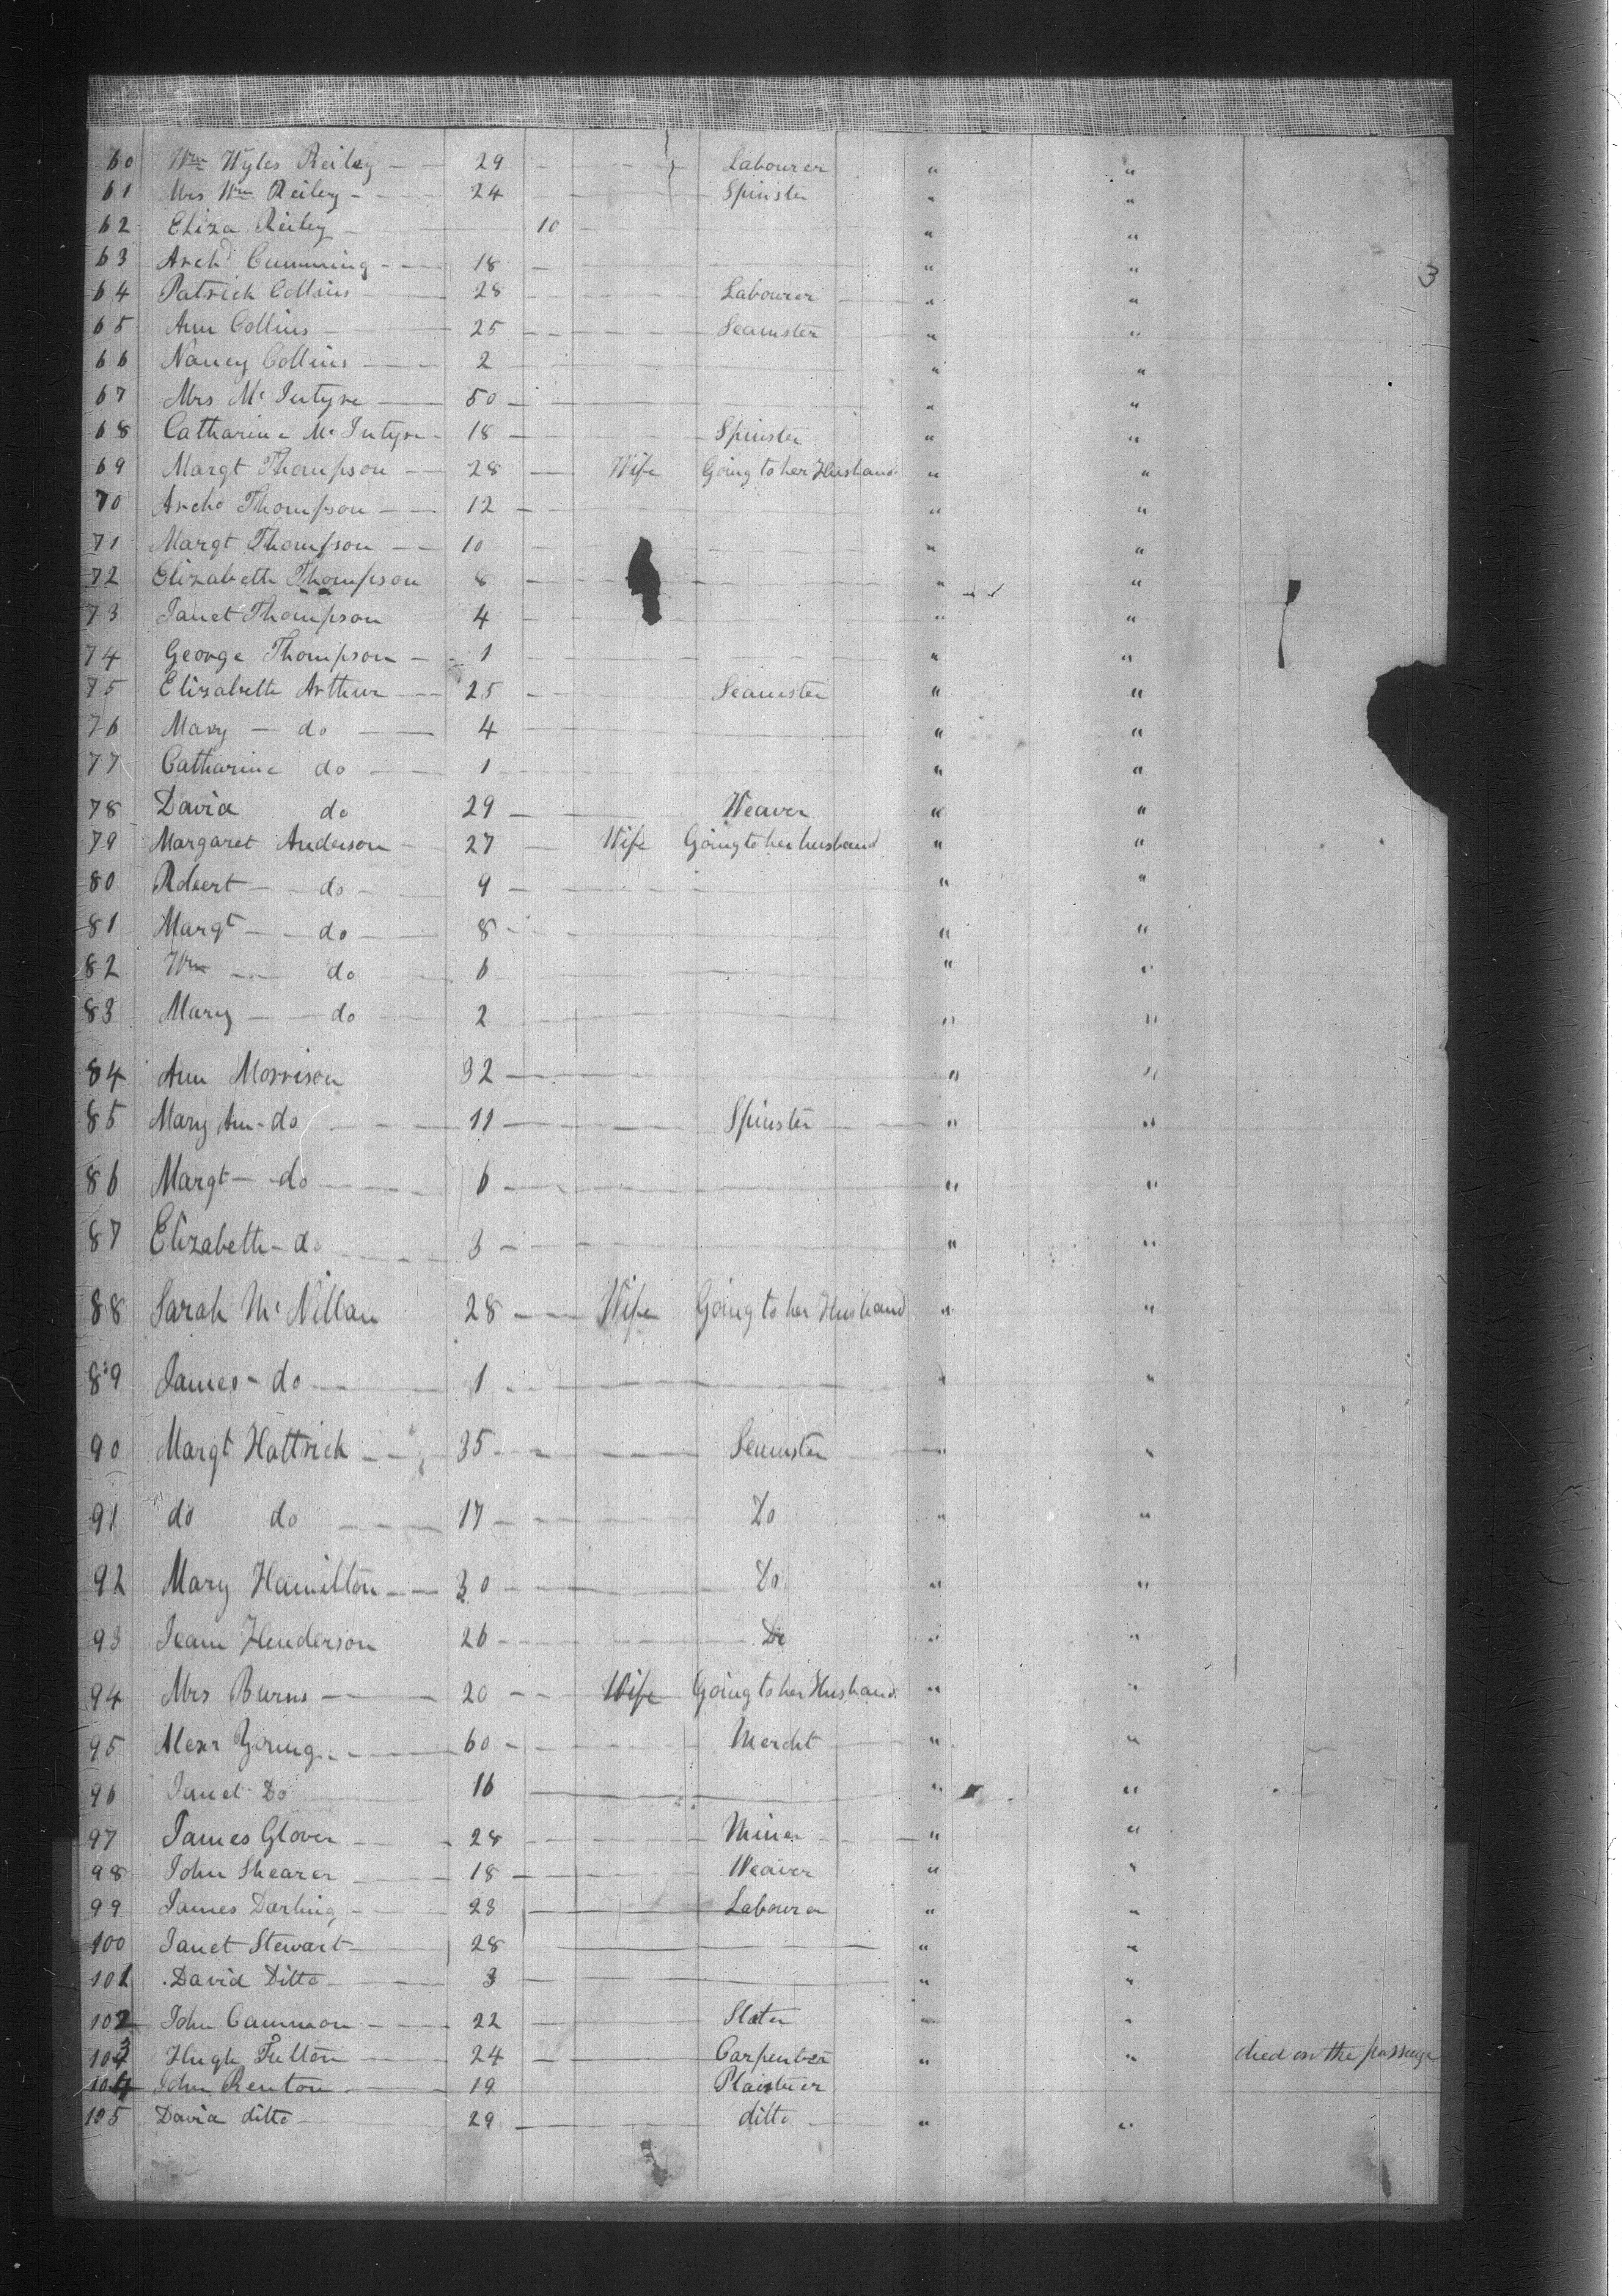 60 Wm Wyles Reiley 29 Labourer " "
61 Mrs Wm Reiley 24 Spinster " "
62 Eliza Reiley 10 " "
63 Archd Cumming 18 " "
3
64 Patrick Collins 28 Labourer " "
65 Ann Collins 25 Seamster " "
66 Nancy Collins 2 " "
67 Mrs Mc Intyre 50 " "
68 Catharine Mc Intyre 18 Spinster " "
69 Margt Thompson 28 Wife Going to her Husband " "
70 Archd Thompson 12 " "
71 Margt Thompson 10 " "
72 Elizabeth Thompson 8 " "
73 Janet Thompson 4 " "
74 George Thompson 1 " "
75 Elizabeth Arthur 25 Seamster " "
76 Mary do 4 " "
77 Catharine do 1 " "
78 David do 29 Weaver " "
79 Margaret Anderson 27 Wife Going to her husband " "
80 Robert do 9 " "
81 Margt do 8 " "
82 Wm do 6 " "
83 Mary do 2 " "
84 Ann Morrison 32 " "
85 Mary Ann do 11 Spinster " "
86 Margt do 6 " "
87 Elizabeth do 3 " "
88 Sarah Mc Nillan 28 Wife Going to her Husband " "
89 James do 1 " "
90 Margt Hattrick 35 Seamster " "
91 do do 17 Do " "
92 Mary Hamilton 30 Do " "
93 Jean Henderson 26 Do " "
94 Mrs Burns 20 Wife Going to her Husband " "
95 Alexr Young 60 Mercht " "
96 Janet Do 16 " "
97 James Glover 28 Miner " "
98 John Shearer 18 Weaver " "
99 James Darling 23 Labourer " "
100 Janet Stewart 28 " "
101 David Ditto 3 " "
102 John Cammon 22 Slater " "
103 Hugh Fulton 24 Carpenter " " died on the passage
104 John Renton 19 Plaisterer
105 David ditto 29 ditto " "